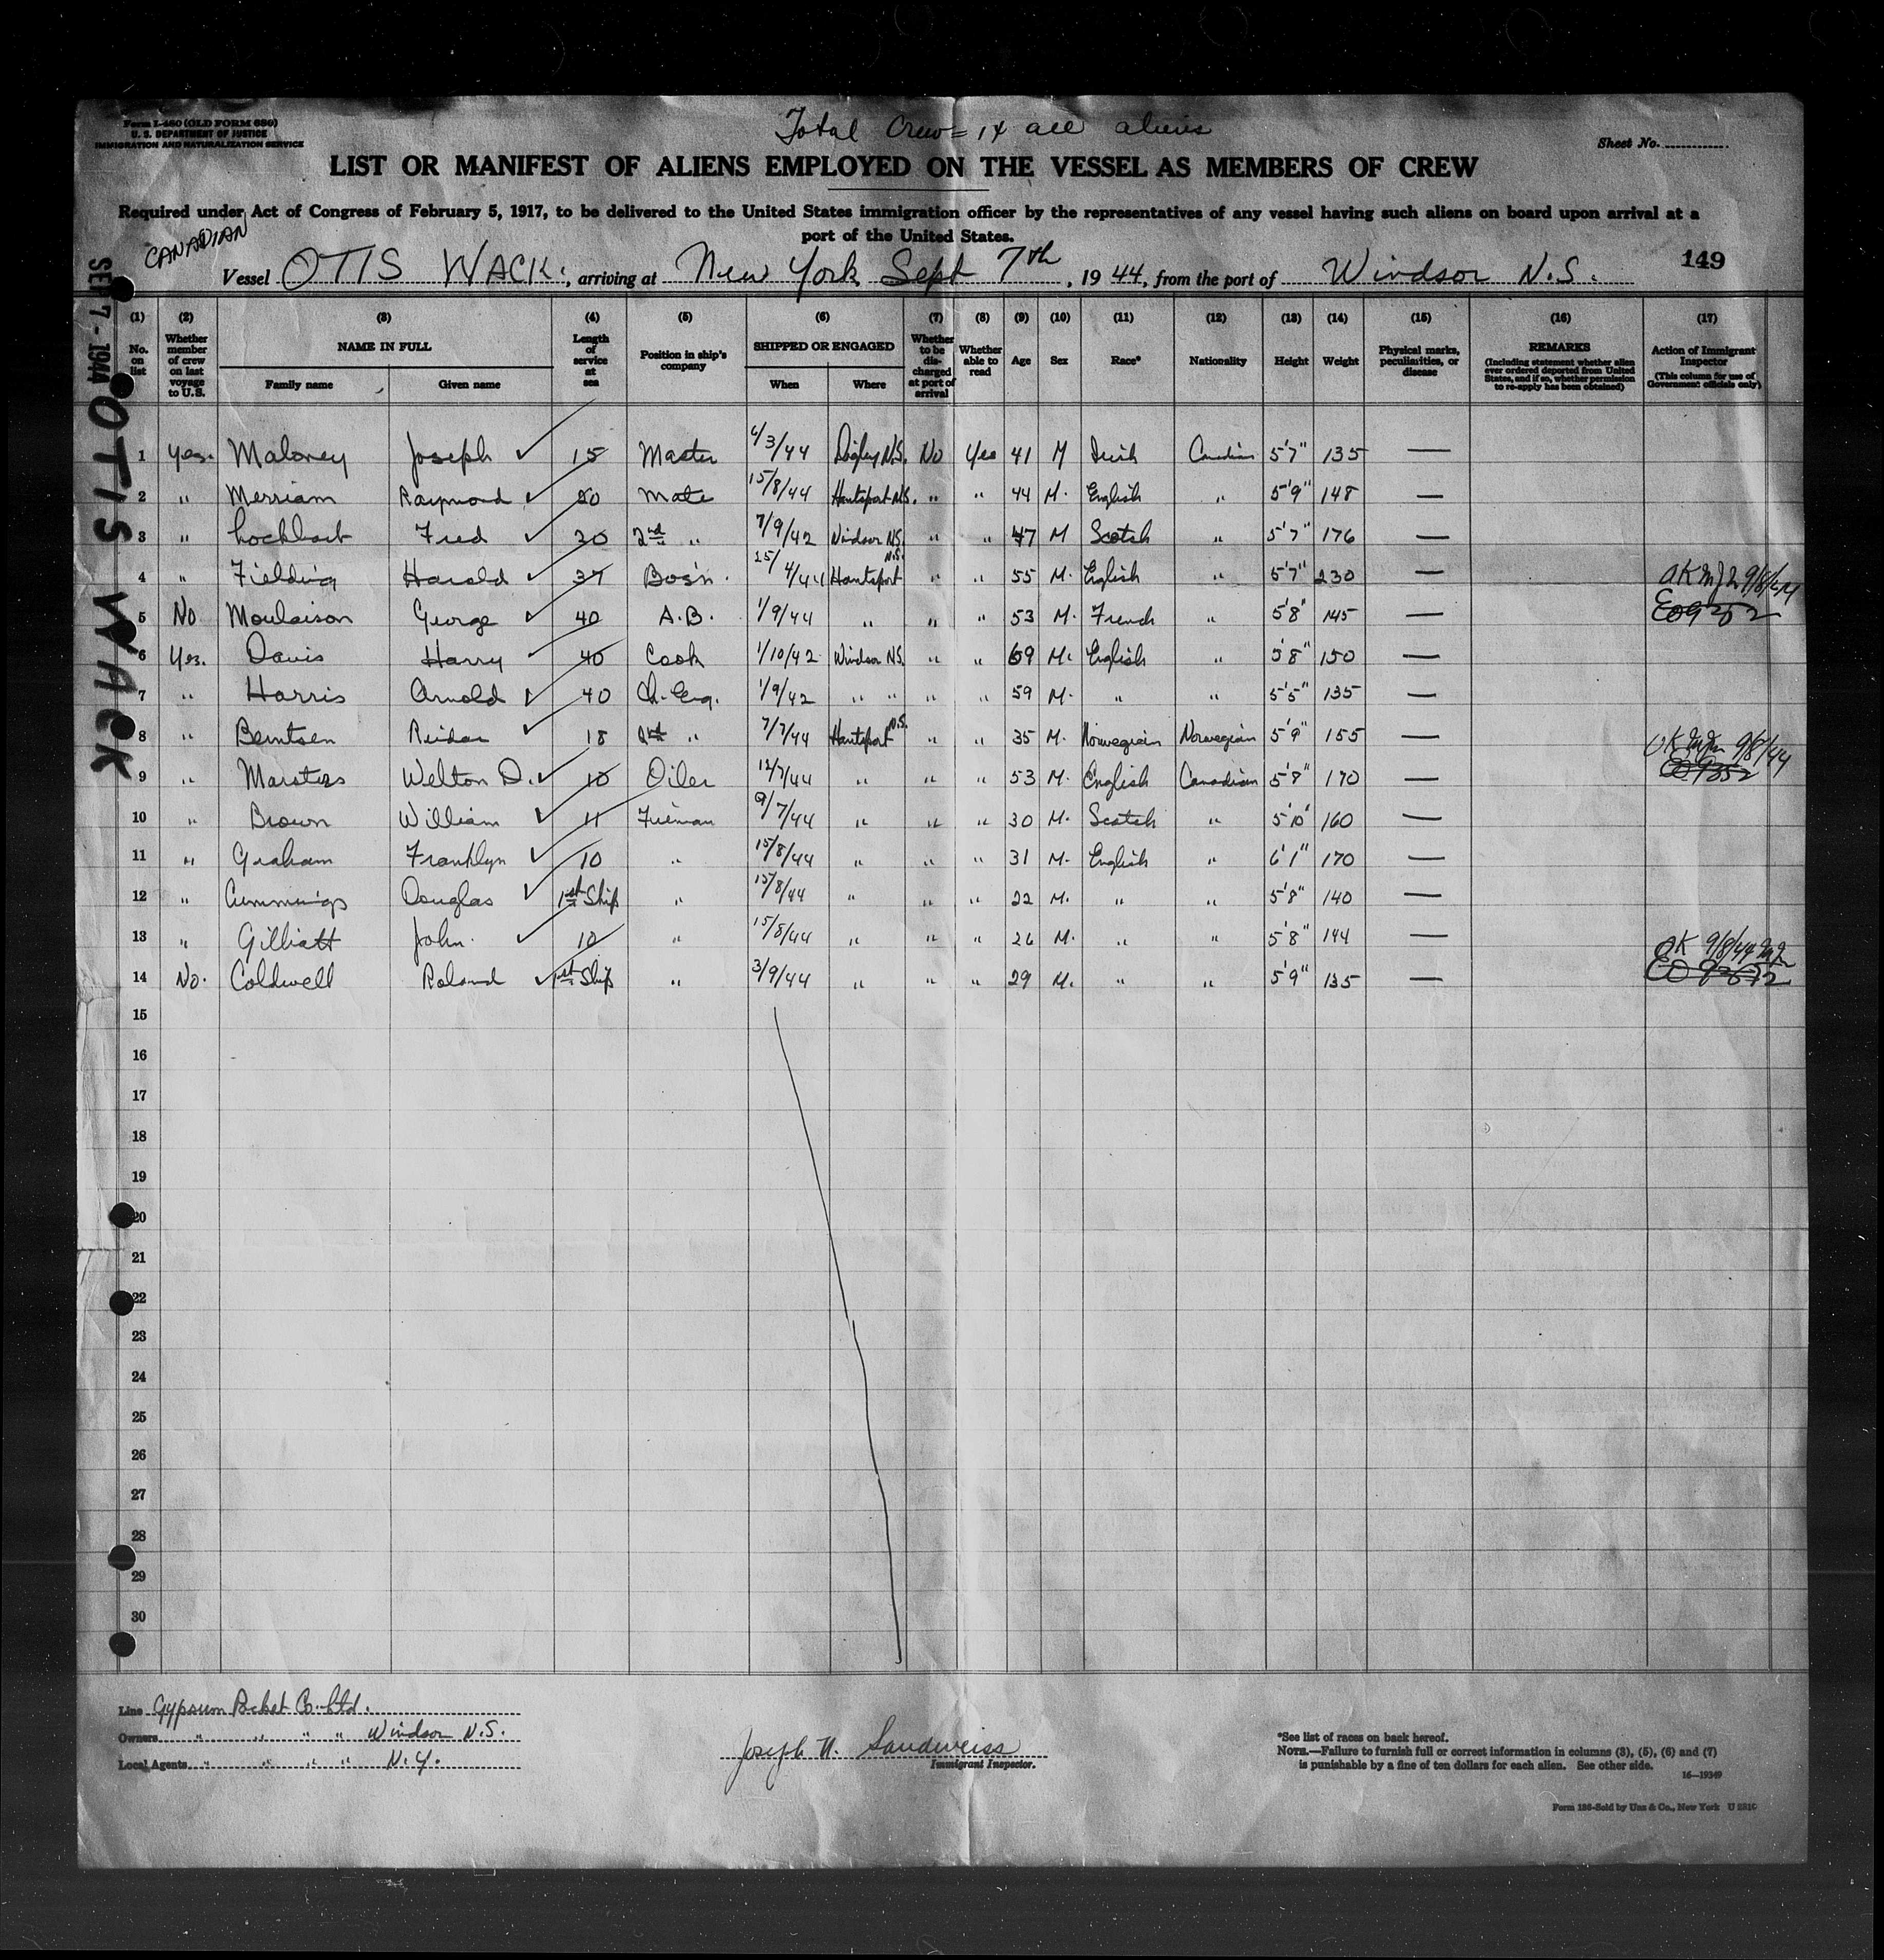 Total Crew = 14 all aliens
Form I-480 (OLD FORM 680)
U. S. DEPARTMENT OF JUSTICE
IMMIGRATION AND NATURALIZATION SERVICE
Sheet No.
LIST OR MANIFEST OF ALIENS EMPLOYED ON THE VESSEL AS MEMBERS OF CREW
Required under Act of Congress of February 5, 1917, to be delivered to the United States immigration officer by the representatives of any vessel having such aliens on board upon arrival at a
port of the United States.
CANADIAN
149
Vessel OTIS WACK, arriving at New York Sept 7th, 1944, from the port of Windsor N.S.
SEP 7 - 1944 OTIS WACK
(1) (2) (3) (4) (5) (6) (7) (8) (9) (10) (11) (12) (13) (14) (15) (16) (17)
No. on list Whether member of crew on last voyage to U.S. NAME IN FULL Family name Given name Length of service at sea Position in ship's company SHIPPED OR ENGAGED When Where Whether to be discharged at port of arrival Whether able to read Age Sex Race* Nationality Height Weight Physical marks, peculiarities, or disease REMARKS (Including statement whether alien ever ordered deported from United States, and if so, whether permission to re-apply has been obtained) Action of Immigrant Inspector (This column for use of Government officials only)
1 Yes. Maloney Joseph ✓ 15 Master 6/3/44 Digby N.S. No Yes 41 M Irish Canadian 5'7" 135 —
2 " Merriam Raymond ✓ 20 Mate 15/8/44 Hantsport N.S. " " 44 M. English " 5'9" 148 —
3 " Lockhart Fred ✓ 20 2nd " 7/9/42 Windsor N.S. " " 47 M Scotch " 5'7" 176 —
4 " Fielding Harold ✓ 37 Bos'n. 25/4/44 Hantsport N.S. " " 55 M. English " 5'7" 230 —
5 No Moulaison George ✓ 40 A.B. 1/9/44 " " " 53 M. French " 5'8" 145 — OK 9/8/44 EO 9352
6 Yes. Davis Harry ✓ 40 Cook 1/10/42 Windsor N.S. " " 69 M. English " 5'8" 150 —
7 " Harris Arnold ✓ 40 Ch. Eng. 1/9/42 " " " " 59 M. " " 5'5" 135 —
8 " Berntsen Reidar ✓ 18 2nd " 7/7/44 Hantsport N.S. " " 35 M. Norwegian Norwegian 5'9" 155 —
9 " Marsters Welton D. ✓ 10 Oiler 12/7/44 " " " 53 M. English Canadian 5'8" 170 — OK 9/8/44 EO 9352
10 " Brown William ✓ 11 Fireman 9/7/44 " " " 30 M. Scotch " 5'10" 160 —
11 " Graham Franklyn ✓ 10 " 15/8/44 " " " 31 M. English " 6'1" 170 —
12 " Cummings Douglas ✓ 1st Ship " 15/8/44 " " " 22 M. " " 5'8" 140 —
13 " Gilliatt John. ✓ 10 " 15/8/44 " " " 26 M. " " 5'8" 144 —
14 No. Coldwell Roland ✓ 1st Ship " 3/9/44 " " " 29 M. " " 5'9" 135 — OK 9/8/44 EO 9352
15
16
17
18
19
20
21
22
23
24
25
26
27
28
29
30
Line Gypsum Packet Co. Ltd.
Owners " " " " Windsor N.S.
Local Agents " " " " N.Y.
Joseph N. Sandweiss
Immigrant Inspector.
*See list of races on back hereof.
NOTE.—Failure to furnish full or correct information in columns (3), (5), (6) and (7)
is punishable by a fine of ten dollars for each alien. See other side.
16—19349
Form 186-Sold by Unz & Co., New York